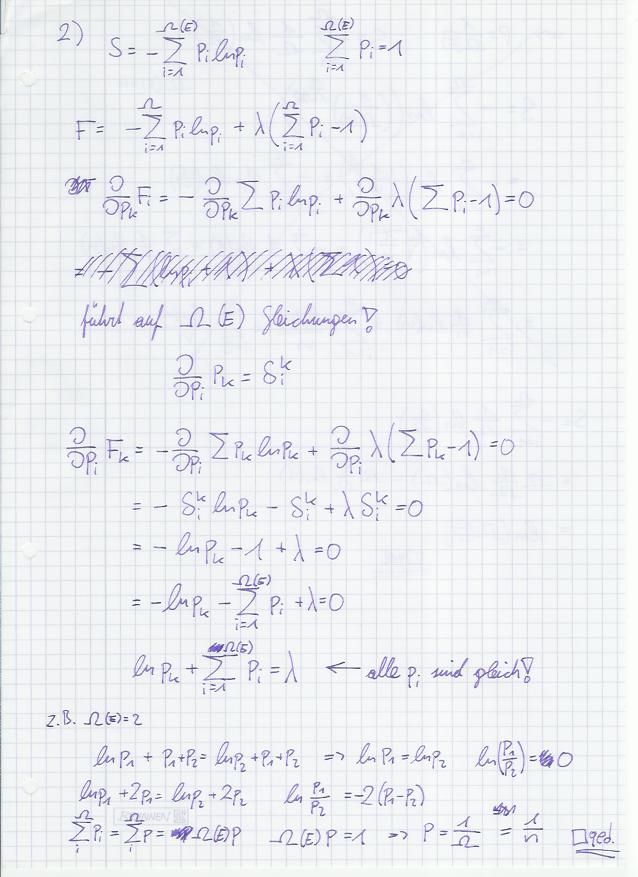 2) S = -∑_{i=1}^{Ω(E)} p_i ln p_i    ∑_{i=1}^{Ω(E)} p_i = 1
F = -∑_{i=1}^{Ω} p_i ln p_i + λ(∑_{i=1}^{Ω} p_i - 1)
∂/∂p_k F_i = -∂/∂p_k ∑ p_i ln p_i + ∂/∂p_k λ(∑ p_i - 1) = 0
führt auf Ω(E) Gleichungen!
∂/∂p_i p_k = δ_i^k
∂/∂p_i F_k = -∂/∂p_i ∑ p_k ln p_k + ∂/∂p_i λ(∑ p_k - 1) = 0
= - δ_i^k ln p_k - δ_i^k + λ δ_i^k = 0
= - ln p_k - 1 + λ = 0
= - ln p_k - ∑_{i=1}^{Ω(E)} p_i + λ = 0
ln p_k + ∑_{i=1}^{Ω(E)} p_i = λ ← alle p_i sind gleich!
z.B. Ω(E) = 2
ln p_1 + p_1 + p_2 = ln p_2 + p_1 + p_2 => ln p_1 = ln p_2    ln(p_1/p_2) = 0
ln p_1 + 2p_1 = ln p_2 + 2p_2    ln p_1/p_2 = -2(p_1 - p_2)
∑_i^Ω p_i = ∑_i^Ω p = Ω(E) p    Ω(E) p = 1 => p = 1/Ω = 1/n    □ qed.